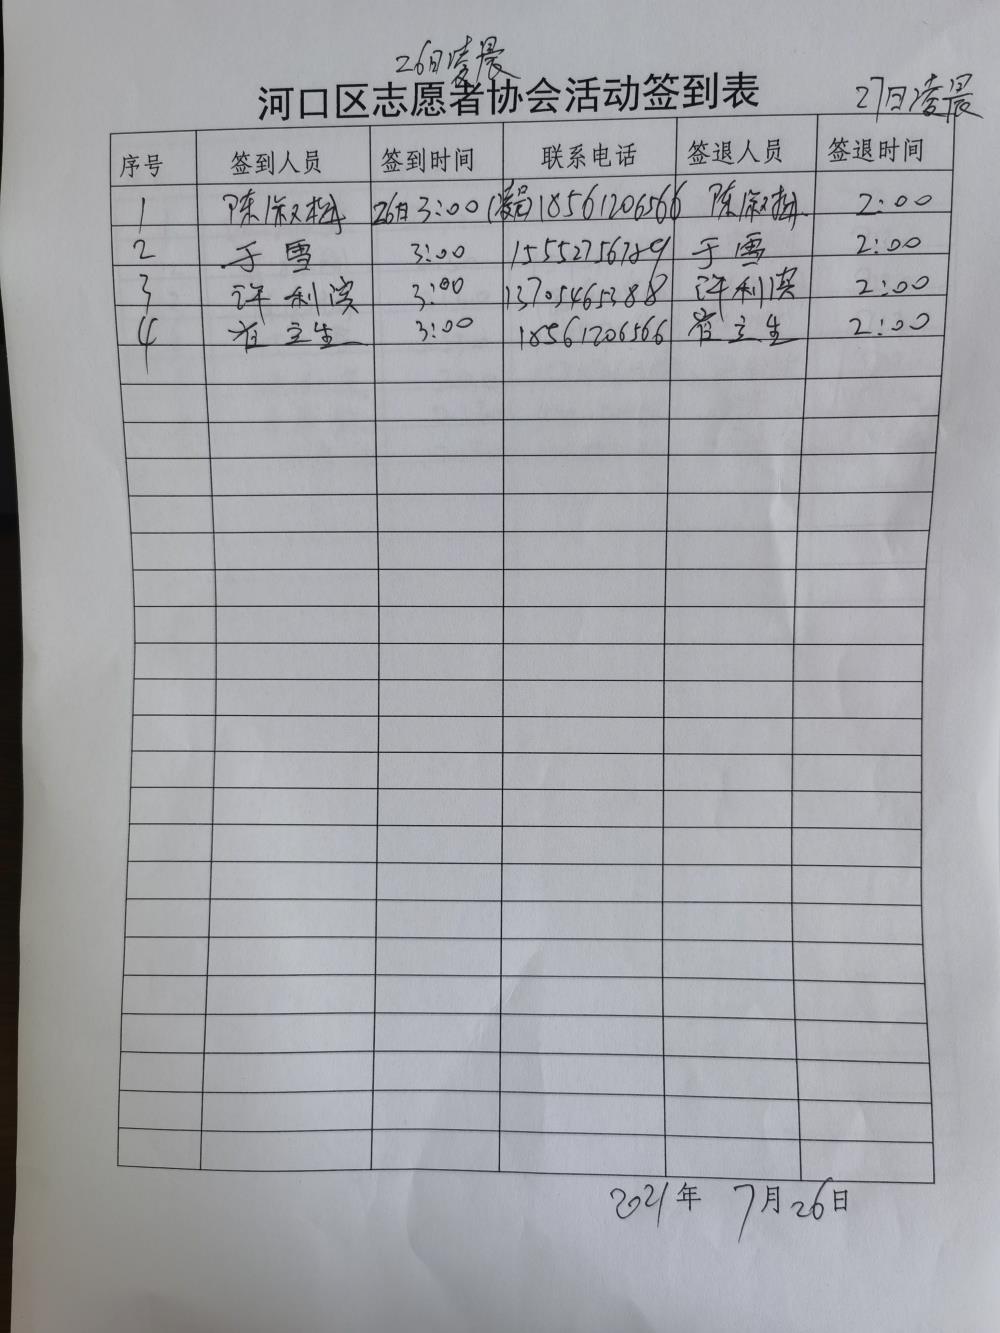 26日凌晨
河口区志愿者协会活动签到表
27日凌晨
序号 签到人员 签到时间 联系电话 签退人员 签退时间
1 陈淑梅 26日3:00(凌晨) 18561206566 陈淑梅 2:00
2 于雪 3:00 15552756789 于雪 2:00
3 许利滨 3:00 13705465388 许利滨 2:00
4 崔立生 3:00 18561206566 崔立生 2:00
2021年 7月26日